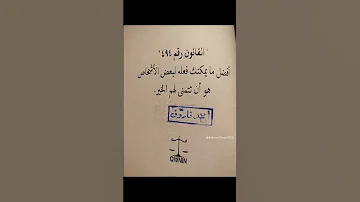 "القانون رقم ٤٩٤"
أفضل ما يمكنك فعله لبعض الأشخاص
هو أن تتمنى لهم الخير.
احمد فاروق
QANNIN